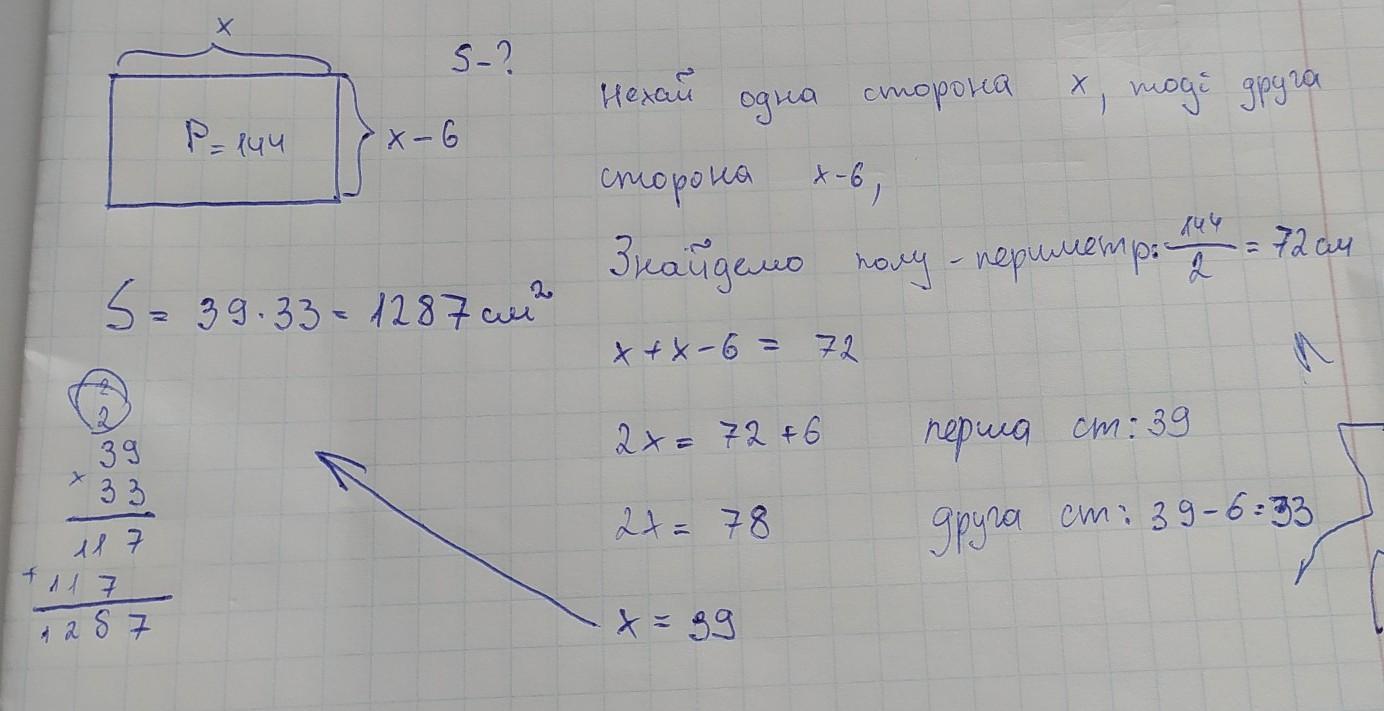 x
S-?
P=144
x-6
Нехай одна сторона x, тоді друга
сторона x-6,
Знайдемо полу-периметр: 144/2 = 72см
x+x-6 = 72
2x = 72+6
2x = 78
x = 39
перша ст: 39
друга ст: 39-6=33
S = 39·33 = 1287см²
2
2
39
× 33
117
+ 117
1287